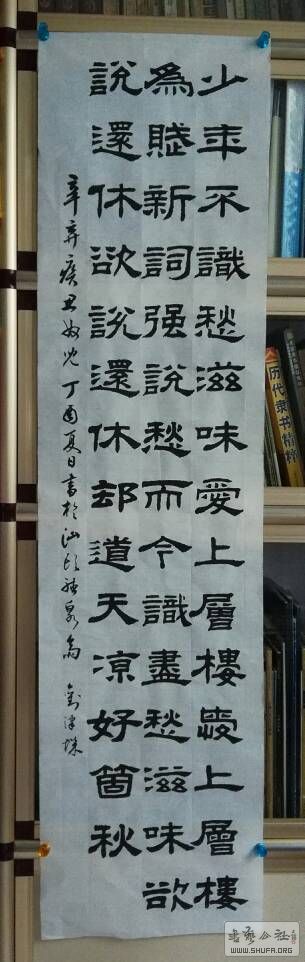 少年不識愁滋味愛上層樓愛上層樓
為賦新詞强說愁而今識盡愁滋味欲
說還休欲說還休却道天凉好箇秋
辛弃疾丑奴儿丁酉夏日書於汕
历代隶书
書藝公社
WWW.SHUFA.ORG